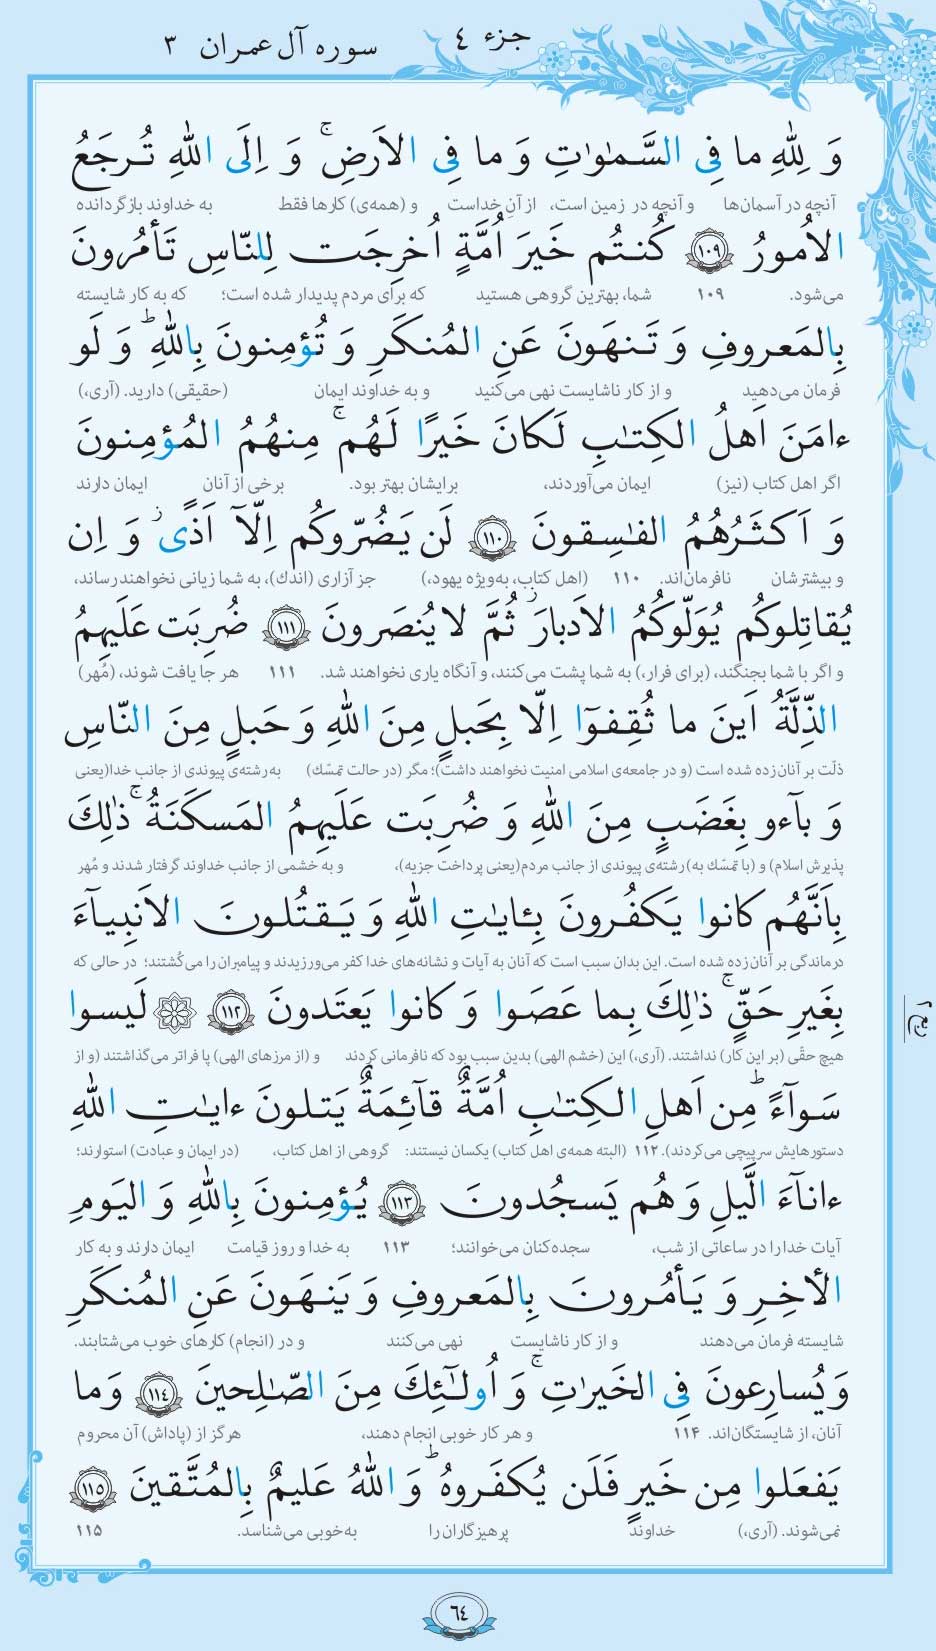 جزء ٤
سوره آل عمران ٣
وَ لِلّٰهِ ما فِی السَّمٰوٰتِ وَ ما فِی الاَرضِ ۚ وَ اِلَی اللّٰهِ تُرجَعُ
آنچه در آسمان‌ها و آنچه در زمین است، از آنِ خداست و (همه‌ی) کارها فقط به خداوند بازگردانده
الاُمورُ ﴿١٠٩﴾ کُنتُم خَیرَ اُمَّةٍ اُخرِجَت لِلنّاسِ تَأمُرونَ
می‌شود. ۱۰۹ شما، بهترین گروهی هستید که برای مردم پدیدار شده است؛ که به کار شایسته
بِالمَعروفِ وَ تَنهَونَ عَنِ المُنکَرِ وَ تُؤمِنونَ بِاللّٰهِ ۗ وَ لَو
فرمان می‌دهید و از کار ناشایست نهی می‌کنید و به خداوند ایمان (حقیقی) دارید. (آری،)
ءامَنَ اَهلُ الکِتٰبِ لَکانَ خَیرًا لَهُم ۚ مِنهُمُ المُؤمِنونَ
اگر اهل کتاب (نیز) ایمان می‌آوردند، برایشان بهتر بود. برخی از آنان ایمان دارند
وَ اَکثَرُهُمُ الفٰسِقونَ ﴿١١٠﴾ لَن یَضُرّوکُم اِلّآ اَذًی ۖ وَ اِن
و بیشترشان نافرمان‌اند. ۱۱۰ (اهل کتاب، به‌ویژه یهود،) جز آزاری (اندک)، به شما زیانی نخواهند رساند،
یُقاتِلوکُم یُوَلّوکُمُ الاَدبارَ ۖ ثُمَّ لا یُنصَرونَ ﴿١١١﴾ ضُرِبَت عَلَیهِمُ
و اگر با شما بجنگند، (برای فرار،) به شما پشت می‌کنند، و آنگاه یاری نخواهند شد. ۱۱۱ هر جا یافت شوند، (مُهر)
الذِّلَّةُ اَینَ ما ثُقِفوٓا اِلّا بِحَبلٍ مِنَ اللّٰهِ وَ حَبلٍ مِنَ النّاسِ
ذلّت بر آنان زده شده است (و در جامعه‌ی اسلامی امنیت نخواهند داشت)؛ مگر (در حالت تمسّک) به رشته‌ی پیوندی از جانب خدا(یعنی
وَ بآءو بِغَضَبٍ مِنَ اللّٰهِ وَ ضُرِبَت عَلَیهِمُ المَسکَنَةُ ۚ ذٰلِکَ
پذیرش اسلام) و (با تمسّک به) رشته‌ی پیوندی از جانب مردم(یعنی پرداخت جزیه)، و به خشمی از جانب خداوند گرفتار شدند و مُهر
بِاَنَّهُم کانوا یَکفُرونَ بِـٔایٰتِ اللّٰهِ وَ یَقتُلونَ الاَنبِیآءَ
درماندگی بر آنان زده شده است. این بدان سبب است که آنان به آیات و نشانه‌های خدا کفر می‌ورزیدند و پیامبران را می‌کُشتند؛ در حالی که
بِغَیرِ حَقٍّ ۚ ذٰلِکَ بِما عَصَوا وَ کانوا یَعتَدونَ ﴿١١٢﴾ لَیسوا
هیچ حقّی (بر این کار) نداشتند. (آری،) این (خشم الهی) بدین سبب بود که نافرمانی کردند و (از مرزهای الهی) پا فراتر می‌گذاشتند (و از
سَوآءً ۗ مِن اَهلِ الکِتٰبِ اُمَّةٌ قآئِمَةٌ یَتلونَ ءایٰتِ اللّٰهِ
دستورهایش سرپیچی می‌کردند). ۱۱۲ (البته همه‌ی اهل کتاب) یکسان نیستند: گروهی از اهل کتاب، (در ایمان و عبادت) استوارند؛
ءانآءَ الَّیلِ وَ هُم یَسجُدونَ ﴿١١٣﴾ یُؤمِنونَ بِاللّٰهِ وَ الیَومِ
آیات خدا را در ساعاتی از شب، سجده‌کنان می‌خوانند؛ ۱۱۳ به خدا و روز قیامت ایمان دارند و به کار
الأخِرِ وَ یَأمُرونَ بِالمَعروفِ وَ یَنهَونَ عَنِ المُنکَرِ
شایسته فرمان می‌دهند و از کار ناشایست نهی می‌کنند و در (انجام) کارهای خوب می‌شتابند.
وَ یُسارِعونَ فِی الخَیرٰتِ ۚ وَ اُولٰٓئِکَ مِنَ الصّٰلِحینَ ﴿١١٤﴾ وَ ما
آنان، از شایستگان‌اند. ۱۱۴ و هر کار خوبی انجام دهند، هرگز از (پاداش) آن محروم
یَفعَلوا مِن خَیرٍ فَلَن یُکفَروهُ ۗ وَ اللّٰهُ عَلیمٌ بِالمُتَّقینَ ﴿١١٥﴾
نمی‌شوند. (آری،) خداوند پرهیزگاران را به‌خوبی می‌شناسد. ۱۱۵
٦٤